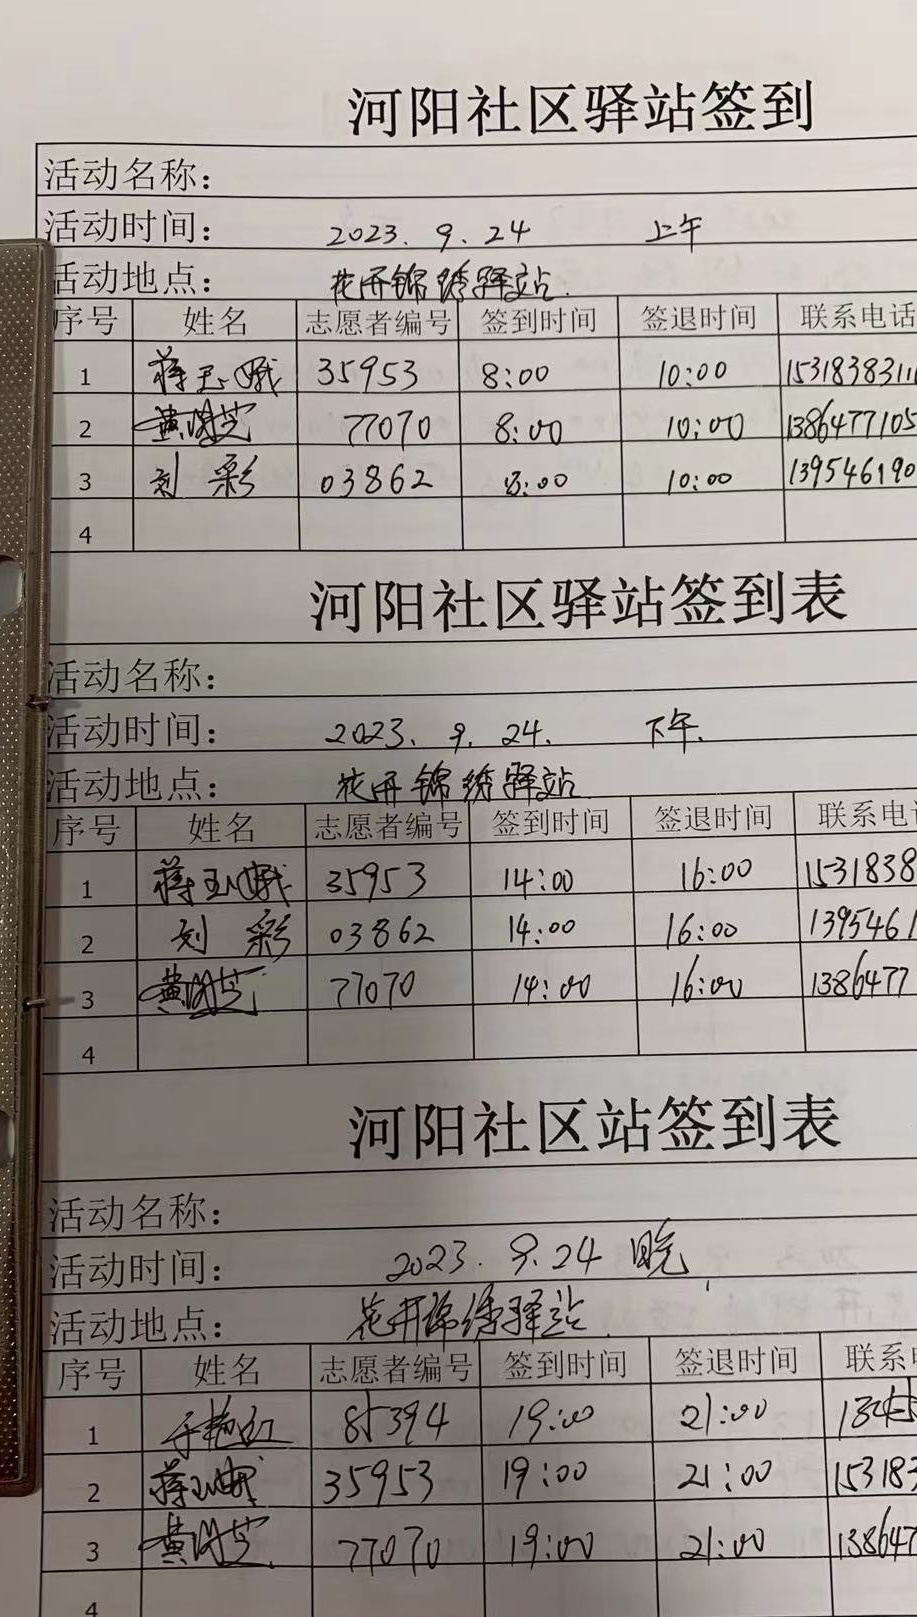 河阳社区驿站签到
活动名称：
活动时间： 2023. 9. 24 上午
活动地点： 花开锦绣驿站.
序号 姓名 志愿者编号 签到时间 签退时间 联系电话
1 蒋玉娥 35953 8:00 10:00 1531838311
2 黄 77070 8:00 10:00 1386477105
3 刘彩 03862 8:00 10:00 139546190
4
河阳社区驿站签到表
活动名称：
活动时间： 2023. 9. 24. 下午.
活动地点： 花开锦绣驿站
序号 姓名 志愿者编号 签到时间 签退时间 联系电
1 蒋玉娥 35953 14:00 16:00 1531838
2 刘彩 03862 14:00 16:00 1395461
3 黄 77070 14:00 16:00 1386477
4
河阳社区站签到表
活动名称：
活动时间： 2023. 9. 24 晚
活动地点： 花开锦绣驿站.
序号 姓名 志愿者编号 签到时间 签退时间 联系
1 于艳红 85394 19:00 21:00
2 蒋玉娥 35953 19:00 21:00 153183
3 黄 77070 19:00 21:00 138647
4